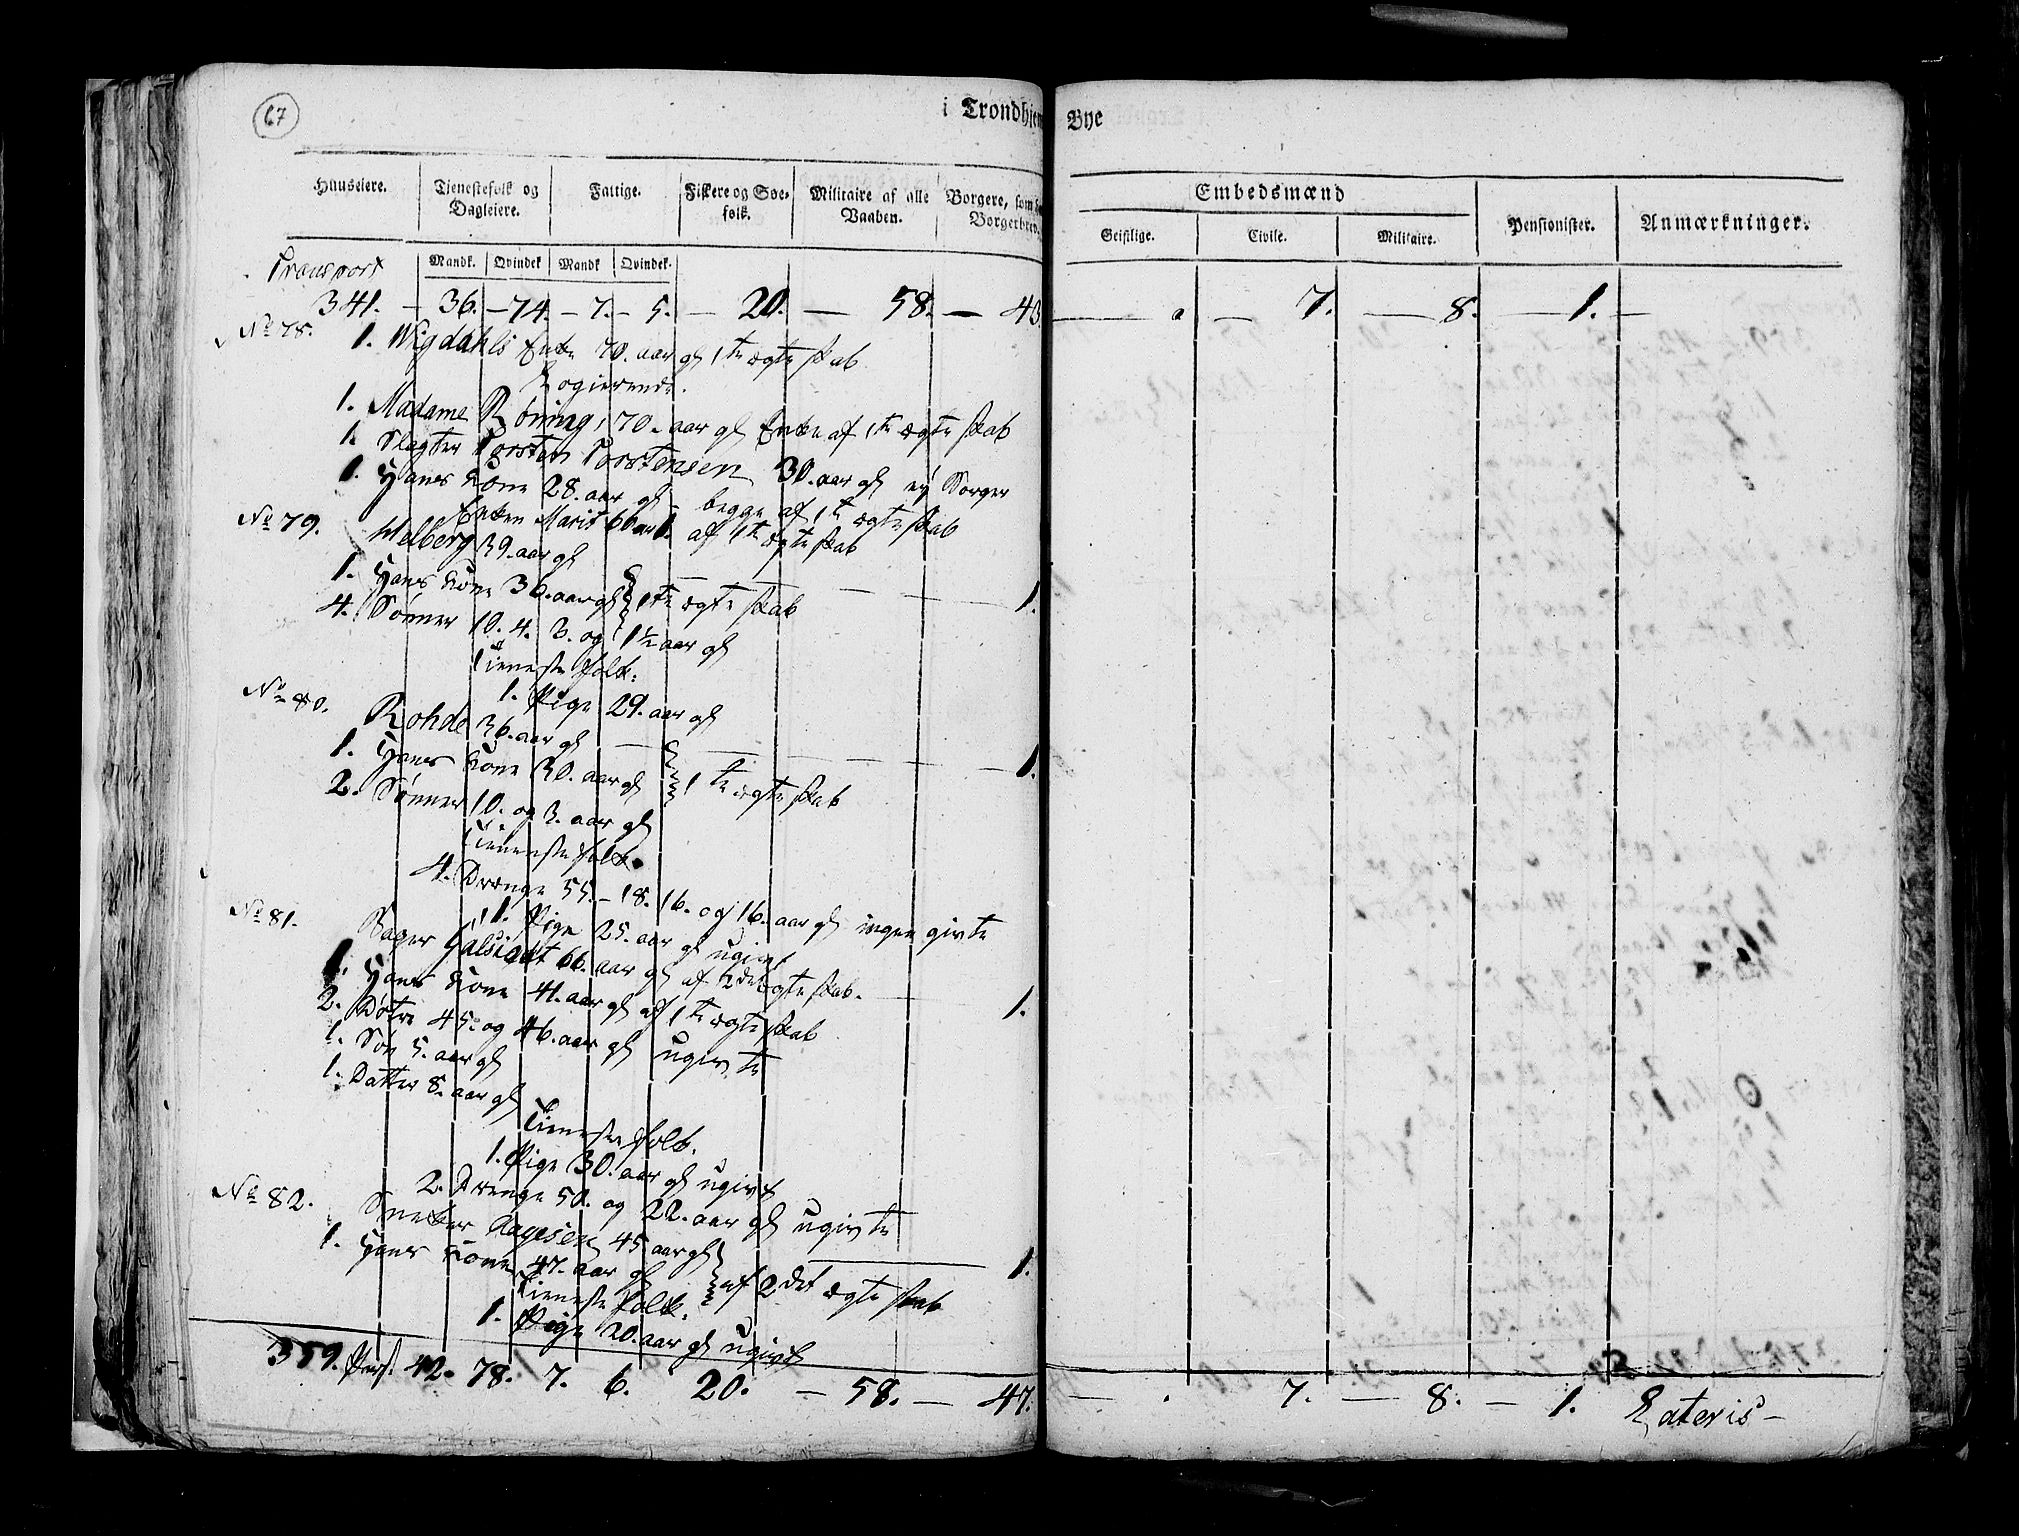 67
i Trondhjem Bye
Huuseiere. Tienestefolk og Dagleiere. Fattige. Fiskere og Søefolk. Militaire af alle Vaaben. Borgere, som Borgerbrev. Embedsmænd Pensionister. Anmærkninger.
Geistlige. Civile. Militaire.
Mandk. Qvindek. Mandk. Qvindek.
Transport
341. — 36. — 74. — 7. — 5. — 20. — 58. — 43. — 7. — 8. — 1. —
No 78. 1. Wigdahls Enke 70. aar gl 1te ægteskab
Logierende.
1. Madame Röning, 70. aar gl Enke af 1te ægteskab
1. Slagter Torsten Torstensen 30. aar gl ej Borger
1. Hans Kone 28. aar gl begge af 1te ægteskab
Enken Marit 66 aar 1. af 1te ægteskab
No 79. Melberg 39. aar gl
1. Hans Kone 36. aar gl 1te ægteskab — 1.
4. Sønner 10. 4. 3. og 1½ aar gl
Tieneste folk.
1. Pige 29. aar gl
No 80. Rohde 36. aar gl
1. Hans Kone 30. aar gl 1te ægteskab — 1.
2. Sønner 10. og 3. aar gl
Tieneste folk.
4. Drenge 55. — 18. 16. og 16. aar gl ingen givte
1. Pige 25. aar gl ugivt
No 81. Bager Galstadt 66. aar gl af 2det ægteskab.
1. Hans Kone 41. aar gl af 1te ægteskab 1.
2. Døtre 45. og 46. aar gl ugivte
1. Søn 5. aar gl
1. Datter 8. aar gl
Tieneste folk.
1. Pige 30. aar gl ugivt
2. Drenge 50. og 22. aar gl ugivte
No 82. Sneker Aagesen 45 aar gl
1. Hans Kone 47. aar gl af 2det ægteskab 1.
Tieneste folk.
1. Pige 20. aar gl ugivt
359. Pers. 42. 78. 7. 6. 20. — 58. — 47. — 7. — 8. — 1. Lateris —